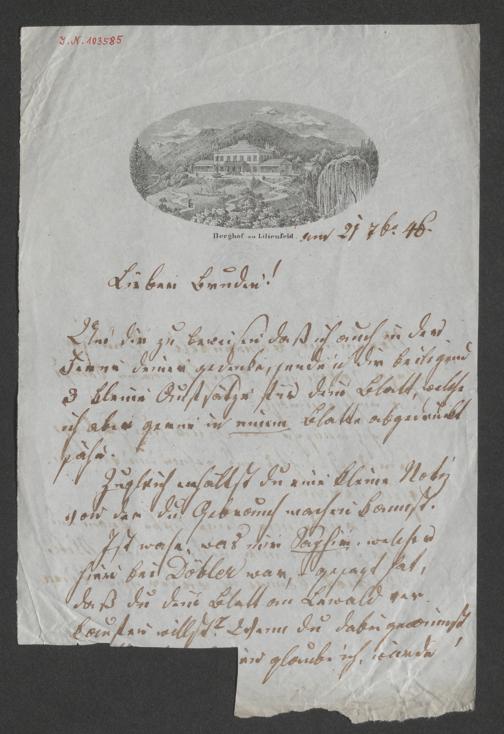 I.N. 103585
Berghof zu Lilienfeld. am 21 7b. 46.
Lieber Bruder!
Um dir zu beweisen daß ich auch in der
Ferne deiner gedenke, sende ich dir beiligend
3 kleine Aufsätze für dein Blatt, welche
ich aber gerne in einem Blatte abgedruckt
sähe.
Zugleich erhältst du eine kleine Notiz
von der du Gebrauch machen kannst.
Ist wahr, was mir Saphir, welcher
hier bei Döbler war, gesagt hat,
daß du dein Blatt an Lewald ver-
kaufen willst? Wenn du dabei gewinnst
glaube ich, würde